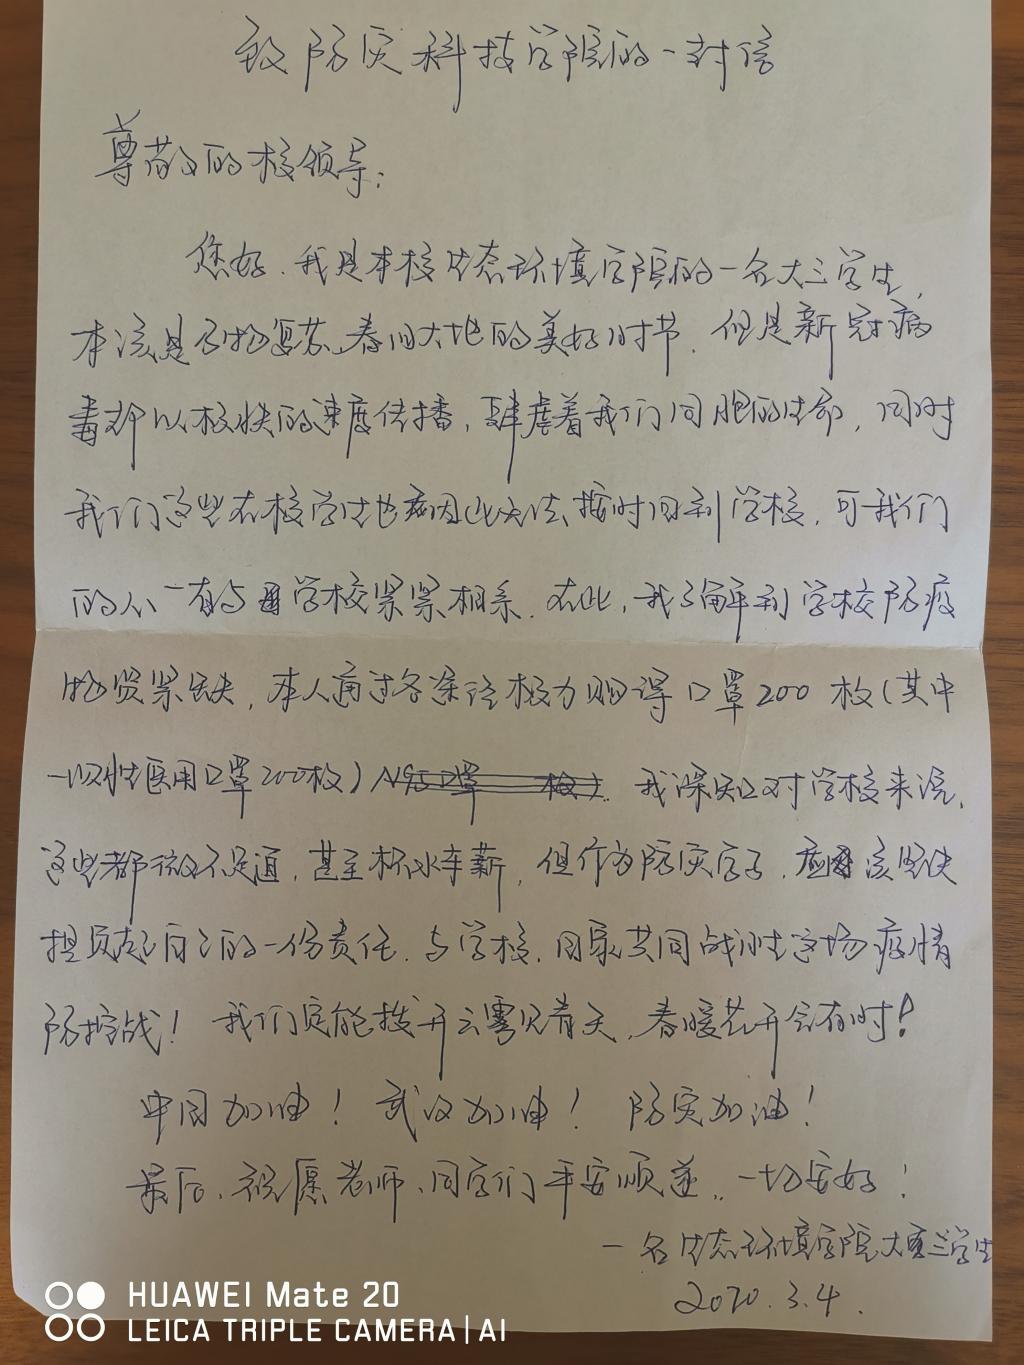 致防灾科技学院的一封信
尊敬的校领导:
您好、我是本校生态环境学院的一名大三学生,
本该是万物复苏、春回大地的美好时节,但是新冠病
毒却以极快的速度传播,肆虐着我们同胞的生命,同时
我们这些在校学生也病因此无法按时回到学校,可我们
的心一直与学校紧紧相系.在此,我了解到学校防疫
物资紧缺,本人通过各途径极力购得口罩200枚(其中
一次性医用口罩200枚)N95口罩 枚).我深知对学校来说,
这些都微不足道,甚至杯水车薪,但作为防灾学子,应该坚决
担负起自己的一份责任.与学校、国家共同战胜这场疫情
防控战!我们定能拨开云雾见青天,春暖花开会有时!
中国加油!武汉加油!防灾加油!
最后、祝愿老师、同学们平安顺遂,一切安好!
一名生态环境学院大三学生
2020.3.4.
HUAWEI Mate 20
LEICA TRIPLE CAMERA | AI